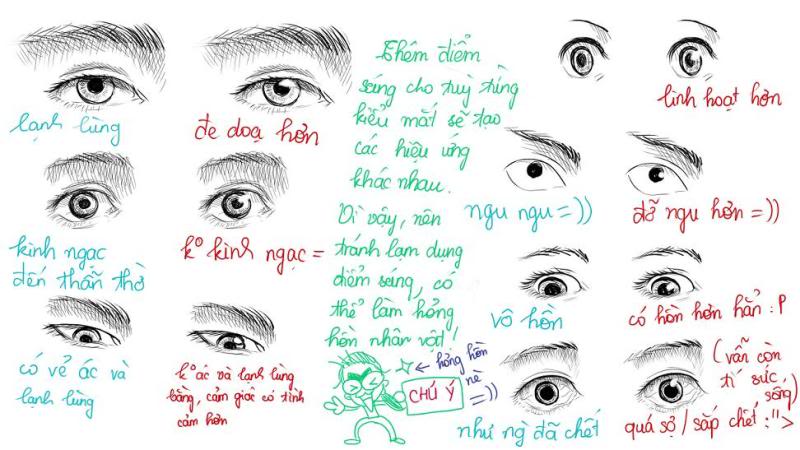 lạnh lùng
đe doạ hơn
kinh ngạc
đến thẫn thờ
k° kinh ngạc =
có vẻ ác và
lạnh lùng
k° ác và lạnh lùng
bằng, cảm giác có tình
cảm hơn
Thêm điểm
sáng cho tuỳ từng
kiểu mắt sẽ tạo
các hiệu ứng
khác nhau.
Vì vậy, nên
tránh lạm dụng
điểm sáng, có
thể làm hỏng
hồn nhân vật!
← hỏng hồn
nè
=))
CHÚ Ý
linh hoạt hơn
ngu ngu =))
đỡ ngu hơn =))
vô hồn
có hồn hơn hẳn :P
như ng` đã chết
quá sợ / sắp chết :">
(vẫn còn
tí sức
sống)